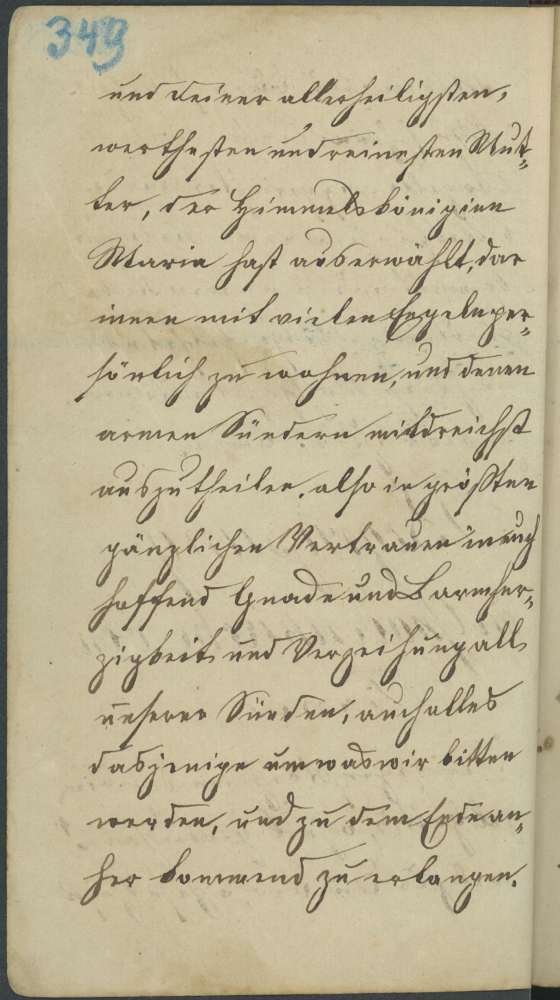 349
und deiner allerheiligsten,
werthesten und reinesten Mut=
ter, der Himmelsköniginn
Maria hast auserwählt, dar
innen mit vielen Engeln per=
sönlich zu wohnen, und denen
armen Sündern mildreichst
auszutheilen, also in größten
gänzlichen Vertrauen in euch
hoffend Gnade und Barmher=
zigkeit und Verzeihung all
unserer Sünden, auch alles
dasjenige um was wir bitten
werden, und zu dem Ende an=
her kommend zu erlangen.